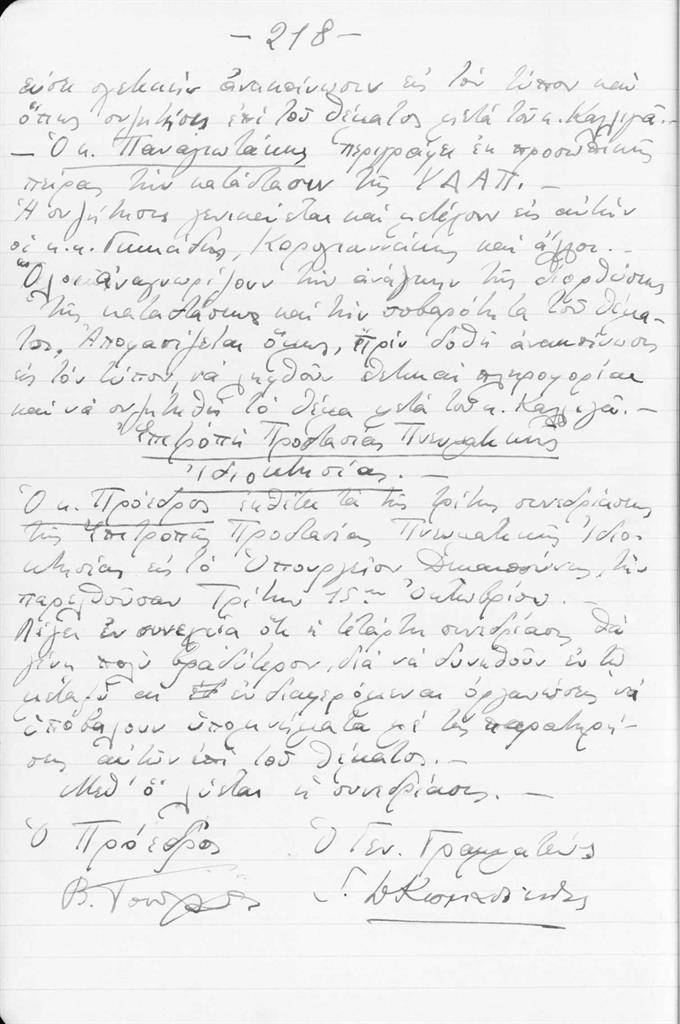 - 218 -
σχετικήν ἀνακοίνωσιν εἰς τὸν τύπον καὶ
ὅπως συζητήσῃ ἐπὶ τοῦ θέματος μετὰ τοῦ κ. Καλλιγᾶ. -
- Ὁ κ. Παναγιωτάκης περιγράφει ἐκ προσωπικῆς
πείρας τὴν κατάστασιν τῆς ΥΔΑΠ. -
Ἡ συζήτησις γενικεύεται καὶ μετέχουν εἰς αὐτὴν
οἱ κ.κ. Καρογιαννάκης καὶ ἄλλοι. -
Ὅλοι ἀναγνωρίζουν τὴν ἀνάγκην τῆς διορθώσεως
τῆς καταστάσεως καὶ τὴν σοβαρότητα τοῦ θέμα-
τος. Ἀποφασίζεται ὅμως, πρὶν δοθῇ ἀνακοίνωσις
εἰς τὸν τύπον, νὰ ληφθοῦν θετικαὶ πληροφορίαι
καὶ νὰ συζητηθῇ τὸ θέμα μετὰ τοῦ κ. Καλλιγᾶ. -
Ἐπιτροπὴ Προστασίας Πνευματικῆς
Ἰδιοκτησίας. -
Ὁ κ. Πρόεδρος ἐκθέτει τὰ τῆς τρίτης συνεδριάσεως
τῆς Ἐπιτροπῆς Προστασίας Πνευματικῆς Ἰδιο-
κτησίας εἰς τὸ Ὑπουργεῖον Δικαιοσύνης, τὴν
παρελθοῦσαν Τρίτην 15ην Ὀκτωβρίου. -
Λέγει ἐν συνεχείᾳ ὅτι ἡ τετάρτη συνεδρίασις θὰ
γίνῃ πολὺ βραδύτερον, διὰ νὰ δυνηθοῦν ἐν τῷ
μεταξὺ αἱ ἐνδιαφερόμεναι ὀργανώσεις νὰ
ὑποβάλουν ὑπομνήματα μὲ τὰς παρατηρή-
σεις αὐτῶν ἐπὶ τοῦ θέματος. -
Μεθ' ὃ λύεται ἡ συνεδρίασις. -
Ὁ Πρόεδρος Ὁ Γεν. Γραμματεύς
Β.